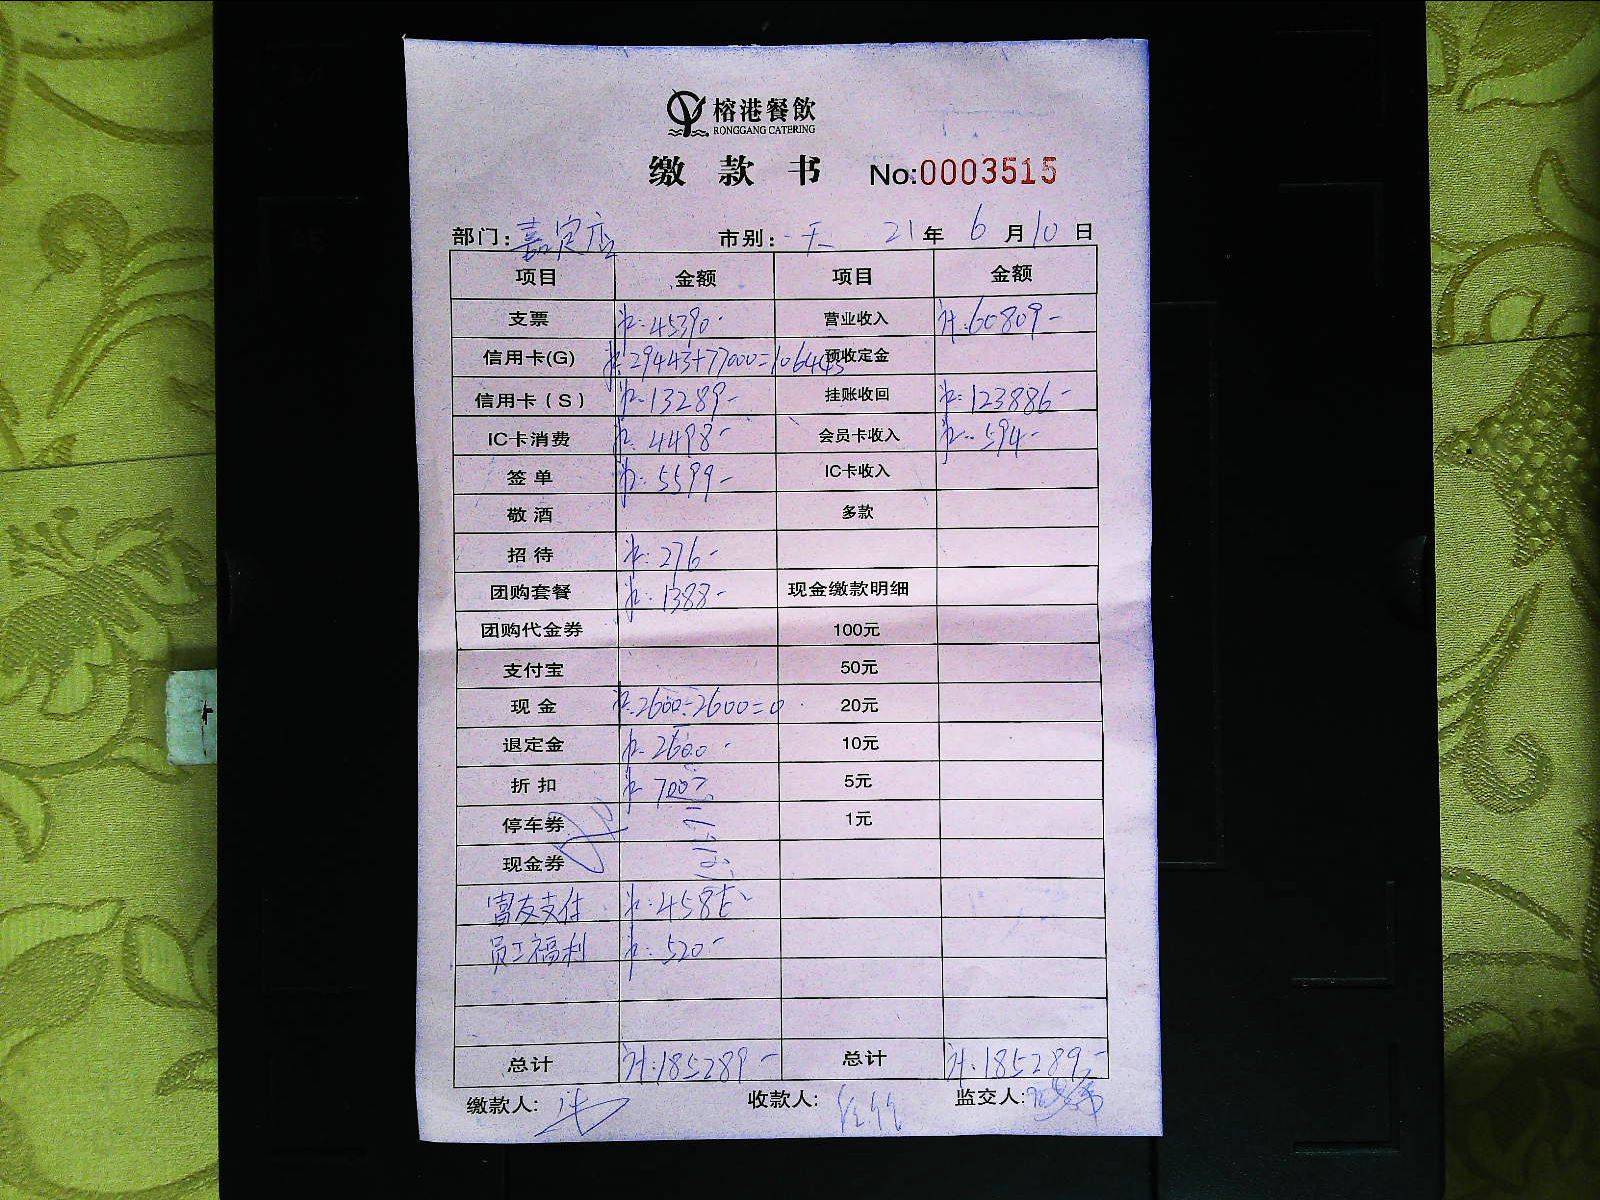 榕港餐飲
RONGGANG CATERING
缴款书 No:0003515
部门:嘉定店 市别:一天 21年6月10日
项目 金额 项目 金额
支票 45390- 营业收入 计:60809-
信用卡(G) 29443+77000=106443 预收定金
信用卡(S) 13289- 挂账收回 123886-
IC卡消费 4498- 会员卡收入 594-
签单 5599- IC卡收入
敬酒 多款
招待 276-
团购套餐 1388- 现金缴款明细
团购代金券 100元
支付宝 50元
现金 2600-2600=0 20元
退定金 2600- 10元
折扣 5元
停车券 1元
现金券
富友支付
员工福利 520-
总计 计:185289- 总计 计:185289-
缴款人: 收款人: 监交人: